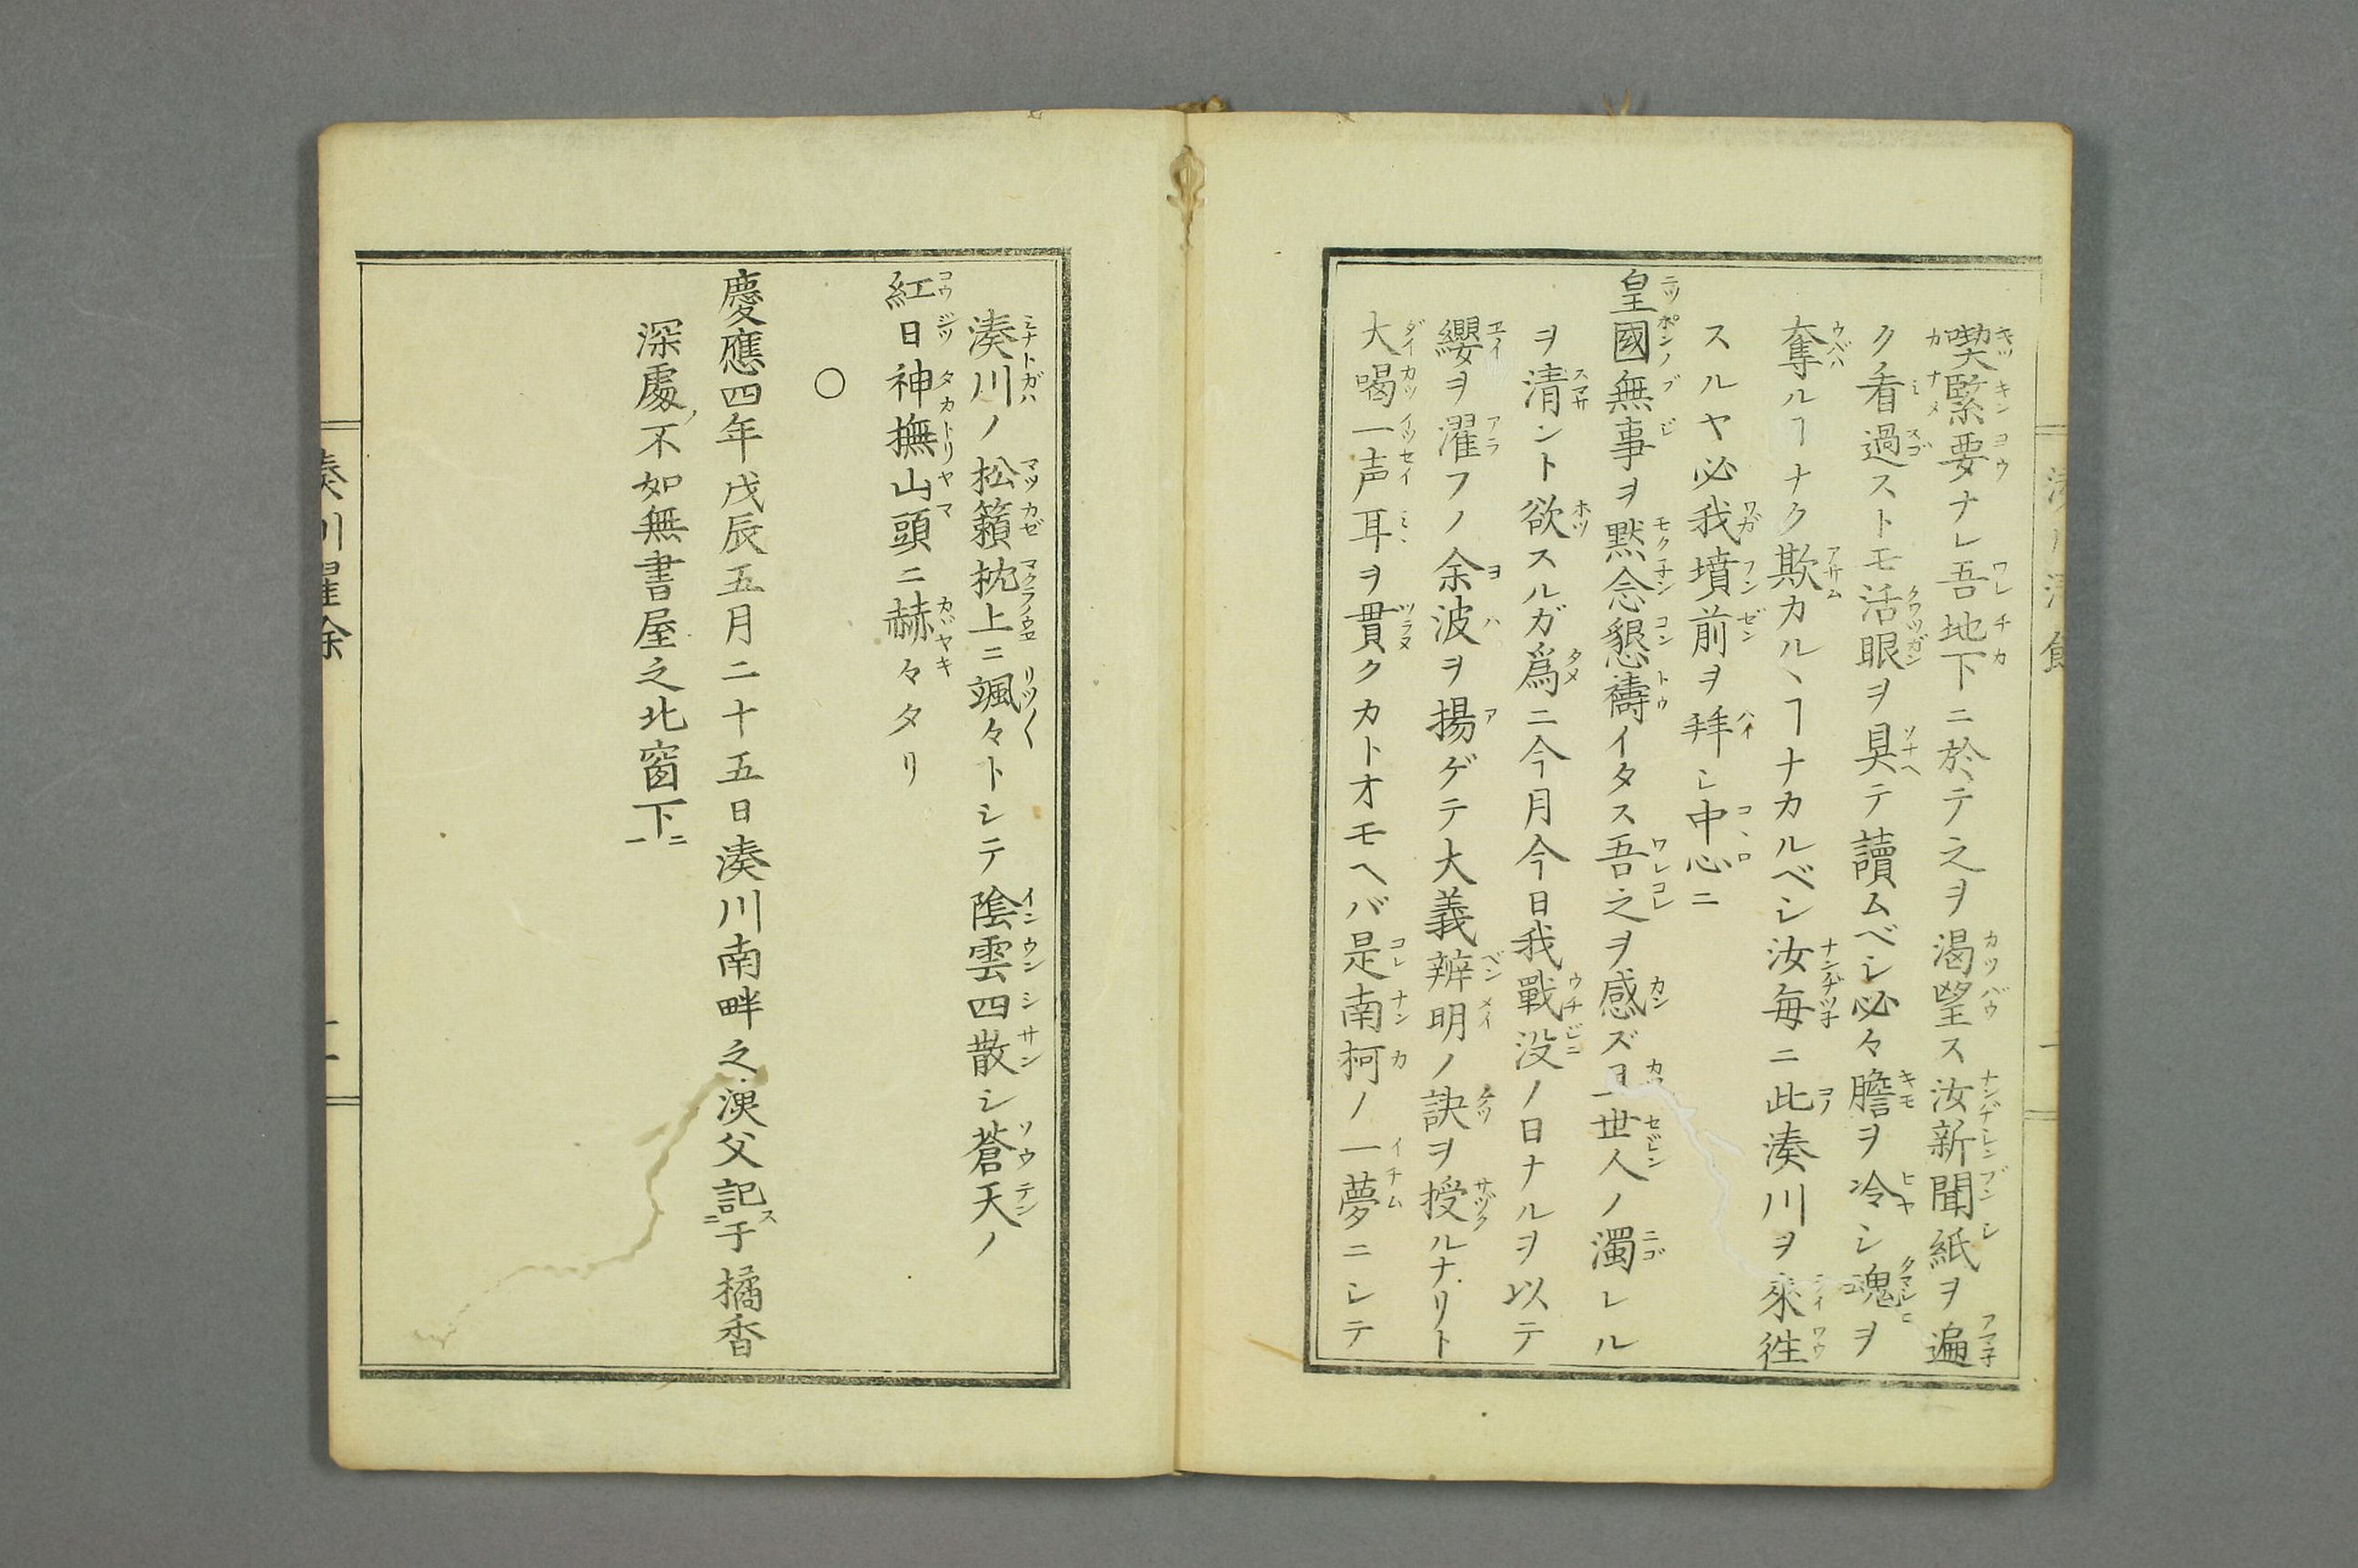 喫緊要ナレ吾地下ニ於テ之ヲ渇望ス汝新聞紙ヲ遍
ク看過ストモ活眼ヲ具テ讀ムベシ必々膽ヲ冷シ魂ヲ
奪ルヿナク欺カルヽヿナカルベシ汝毎ニ此湊川ヲ來徃
スルヤ必我墳前ヲ拜シ中心ニ
皇國無事ヲ黙念懇禱イタス吾之ヲ感ズ且世人ノ濁レル
ヲ清ント欲スルガ爲ニ今月今日我戰没ノ日ナルヲ以テ
纓ヲ濯フノ余波ヲ揚ゲテ大義辨明ノ訣ヲ授ルナリト
大喝一声耳ヲ貫クカトオモヘバ是南柯ノ一夢ニシテ
湊川ノ松籟枕上ニ颯々トシテ陰雲四散シ蒼天ノ
紅日神撫山頭ニ赫々タリ
○
慶應四年戊辰五月二十五日湊川南畔之漁父記ス于橘香
深處ノ不如無書屋之北窗下ニ
湊川濯余